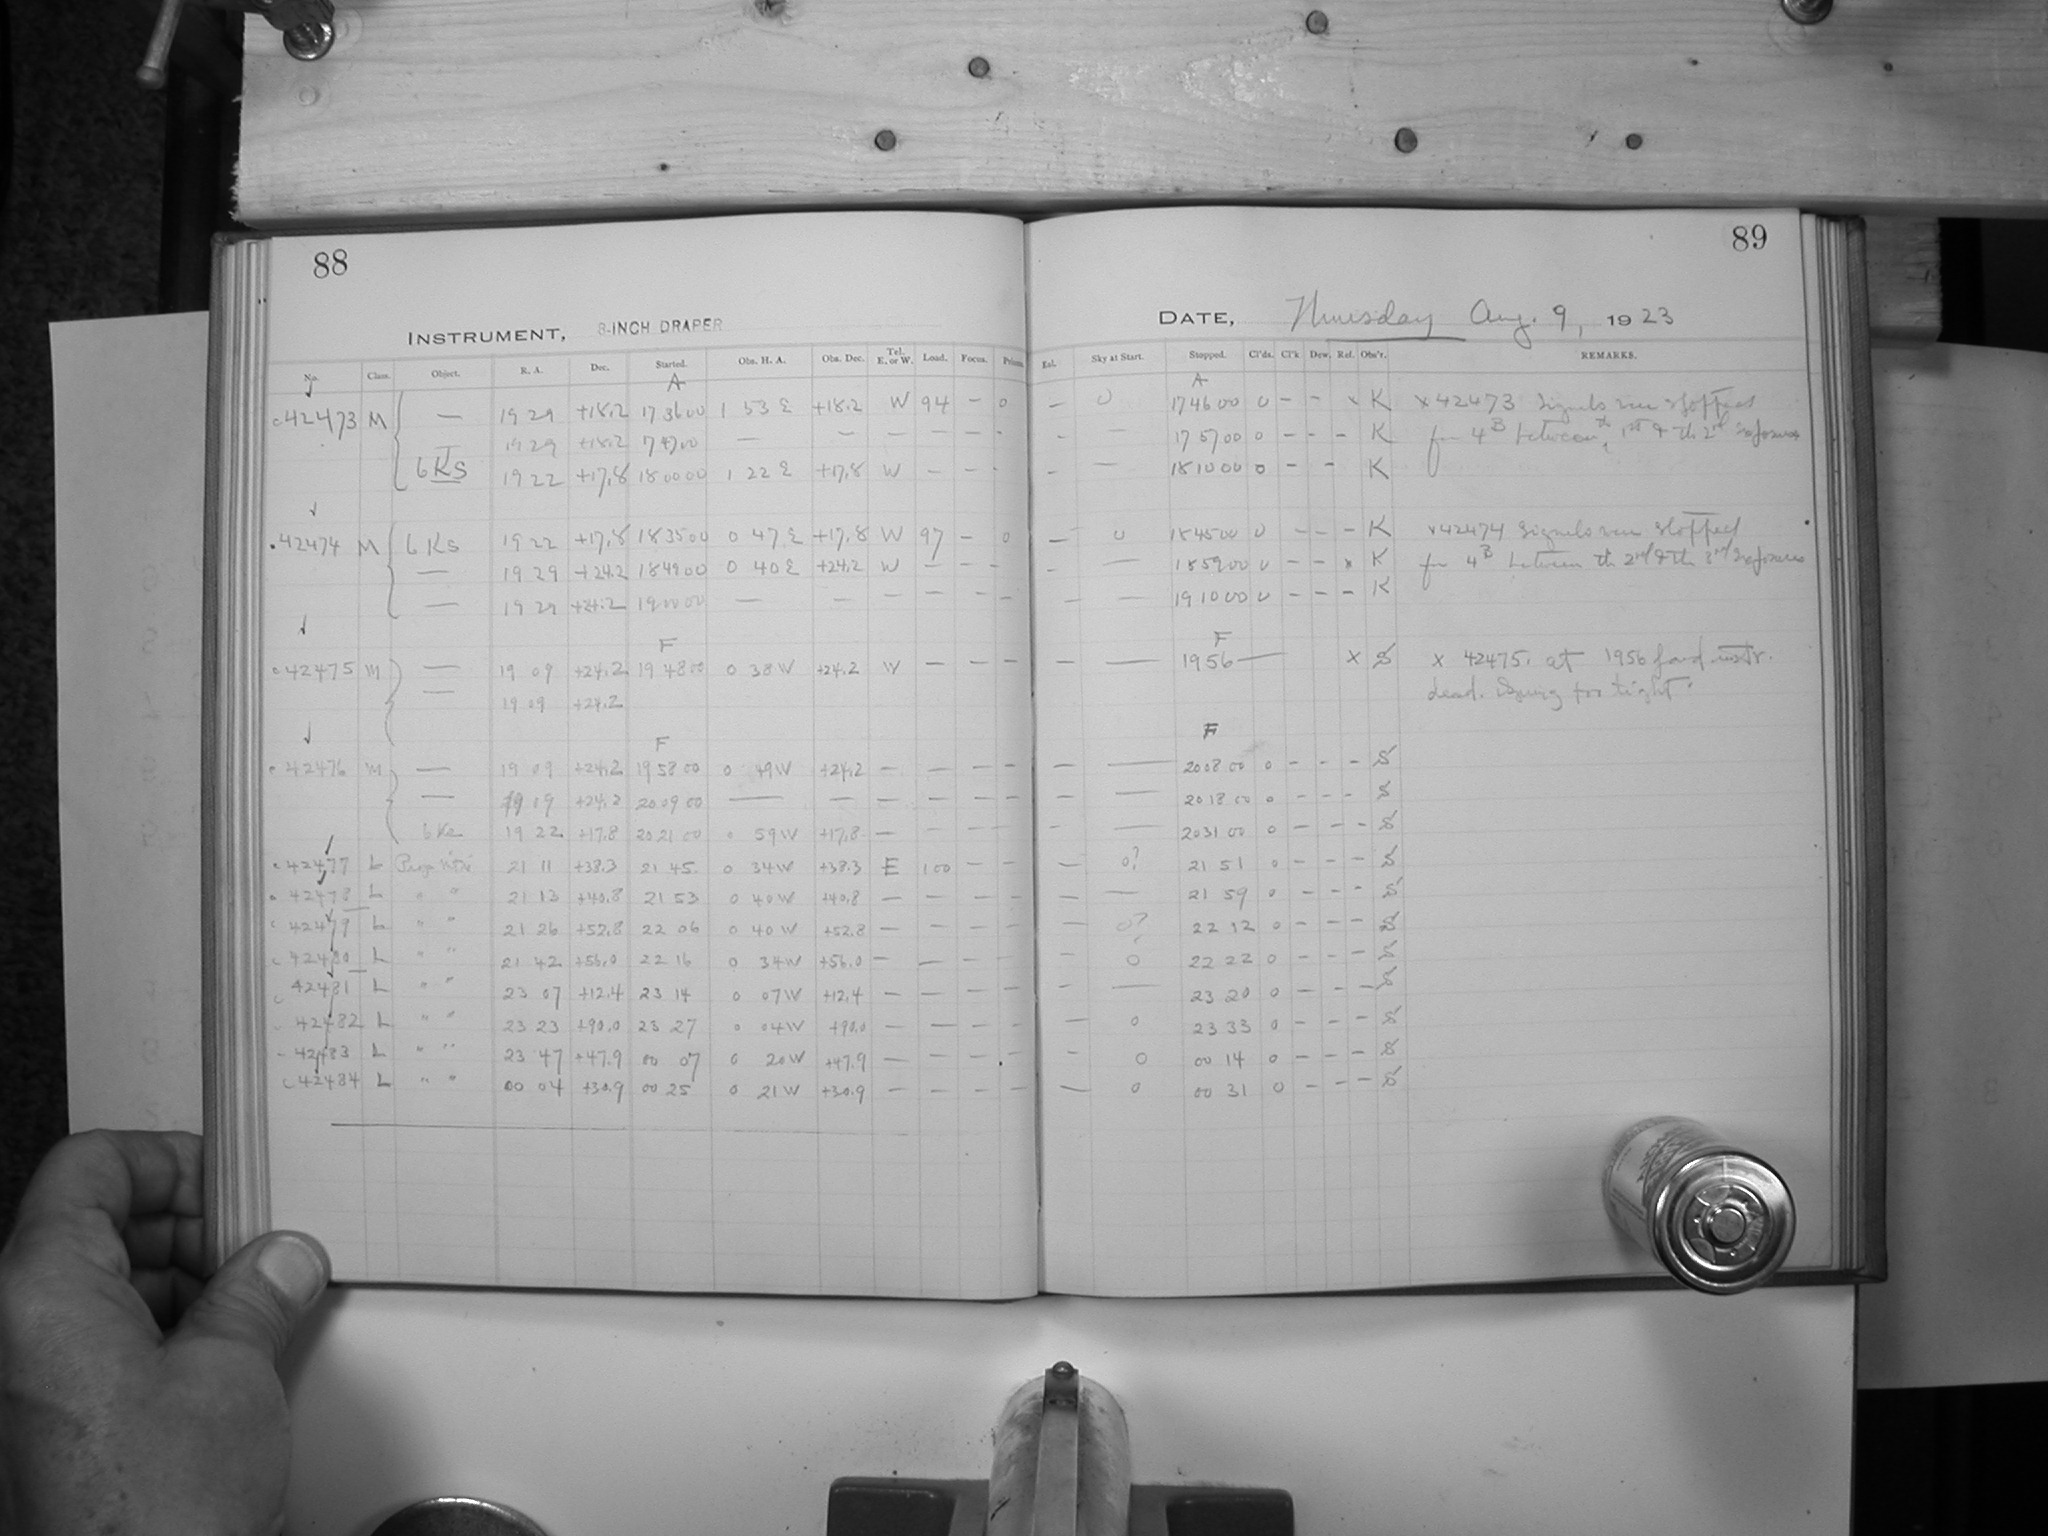 88
INSTRUMENT, 8-INCH DRAPER
No. Class. Object. R. A. Dec. Started. Obs. H. A. Obs. Dec. Tel. E. or W. Load. Focus. Prism.
A
42473 M — 19 29 +18.2 17 36 00 1 53 E +18.2 W 94 – 0
19 29 +18.2 — — — — — –
6 Ks 19 22 +17.8 18 00 00 1 22 E +17.8 W — – -
42474 M 6 Ks 19 22 +17.8 18 35 00 0 47 E +17.8 W 97 – 0
— 19 29 +24.2 18 49 00 0 40 E +24.2 W — – –
— 19 29 +24.2 19 00 00 — — — — – –
F
42475 M — 19 09 +24.2 19 48 00 0 38 W +24.2 W — — –
— 19 09 +24.2
F
42476 M — 19 09 +24.2 19 58 00 0 49 W +24.2 — — – –
— 19 19 +24.2 20 09 00 — — — — – –
19 22 +17.8 20 21 00 0 59 W +17.8 — — – –
42477 L 21 11 +38.3 21 45 0 34 W +38.3 E 100 – –
42478 L " " 21 13 +40.8 21 53 0 40 W +40.8 — — – –
42479 L " " 21 26 +52.8 22 06 0 40 W +52.8 — — – –
42480 L " " 21 42 +56.0 22 16 0 34 W +56.0 — — – –
42481 L " " 23 07 +12.4 23 14 0 07 W +12.4 — — – –
42482 L " " 23 23 +90.0 23 27 0 04 W +90.0 — — – –
42483 L " " 23 47 +47.9 00 07 0 20 W +47.9 — — – –
42484 L " " 00 04 +30.9 00 25 0 21 W +30.9 — — – –
89
DATE, Thursday Aug. 9, 1923
Sky at Start. Stopped. Cl'ds. Cl'k Dew. Ref. Obs'r. REMARKS.
A
– 0 17 46 00 0 – – x K x 42473 Signals were stopped
– — 17 57 00 0 – – – K for 4 between the 1st & the 2nd exposures
– — 18 10 00 0 – – K
— 0 18 45 00 0 – – – K x 42474 Signals were stopped
– — 18 59 00 0 – – x K for 4 between the 2nd & the 3rd exposures
– — 19 10 00 0 – – – K
F
– — 19 56 — x S x 42475. at 1956 found instr.
dead. Spring too tight.
F
– — 20 08 00 0 – – – S
– — 20 18 00 0 – – – S
– — 20 31 00 0 – – – S
– 0? 21 51 0 – – – S
– — 21 59 0 – – – S
– 0? 22 12 0 – – – S
– 0 22 22 0 – – – S
– — 23 20 0 – – – S
– 0 23 33 0 – – – S
– 0 00 14 0 – – – S
– 0 00 31 0 – – – S